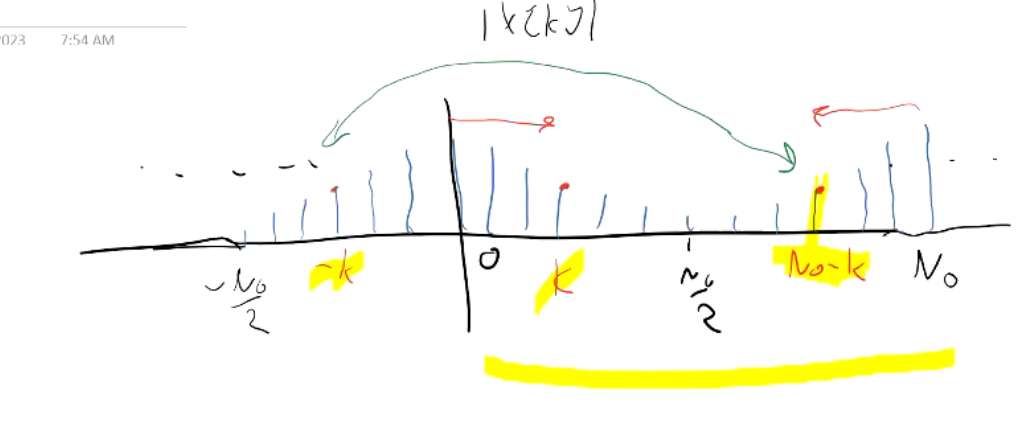 2023 7:54 AM
|X[k]|
-N₀/2 -k 0 k N₀/2 N₀-k N₀